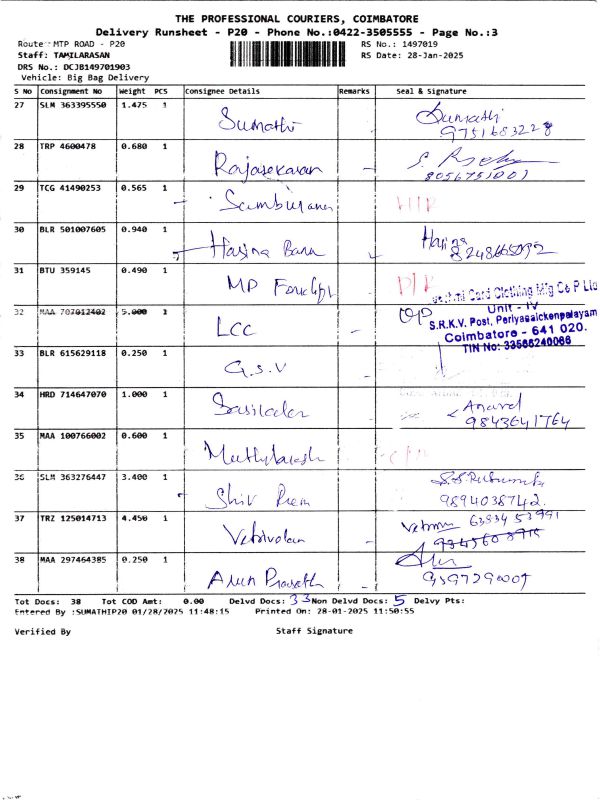 THE PROFESSIONAL COURIERS, COIMBATORE
Delivery Runsheet - P20 - Phone No.:0422-3505555 - Page No.:3
Route: MTP ROAD - P20
RS No.: 1497019
Staff: TAMILARASAN
RS Date: 28-Jan-2025
DRS No.: DCJB149701903
Vehicle: Big Bag Delivery
S NO Consignment No Weight PCS Consignee Details Remarks Seal & Signature
27 SLM 363395550 1.475 1 Sumathi Sumathi
9751683228
28 TRP 4600478 0.680 1 Rajasekaran
8056751001
29 TCG 41490253 0.565 1
30 BLR 501007605 0.940 1 Hasina Banu Hasina
8248665092
31 BTU 359145 0.490 1 MP
32 MAA 707012402 5.000 1 LCC
Card Clothing Mfg Co P Ltd
Unit - IV
S.R.K.V. Post, Periyanaickenpalayam
Coimbatore - 641 020.
TIN No: 33566240066
33 BLR 615629118 0.250 1 G.S.V
34 HRD 714647070 1.000 1 Anand
9843641764
35 MAA 100766002 0.600 1
36 SLM 363276447 3.400 1 Shiv Prem
9894038742
37 TRZ 125014713 4.450 1 Vetrivelan
63834 53991
38 MAA 297464385 0.250 1 Arun Prasath
9597290009
Tot Docs: 38 Tot COD Amt: 0.00 Delvd Docs: 33 Non Delvd Docs: 5 Delvy Pts:
Entered By :SUMATHIP20 01/28/2025 11:48:15 Printed On: 28-01-2025 11:50:55
Verified By Staff Signature